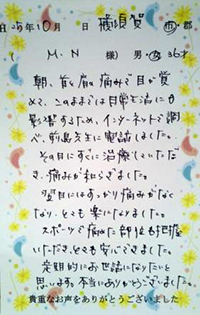 年10月 日 横須賀 市・郡
( M.N 様) 男・女 36才
朝、首と肩の痛みで目が覚
めて、このままでは日常生活にも
影響するため、インターネットで調
べ、前島先生に電話しました。
その日にすぐに治療していただ
き、痛みが和らぎました。
翌日にはすっかり痛みがなく
なり、とても楽になりました。
スポーツで痛めた肩も
いただき、とても安心できました。
定期的にお世話になりたいと
思います。本当にありがとうございました。
貴重なお声をありがとうございました